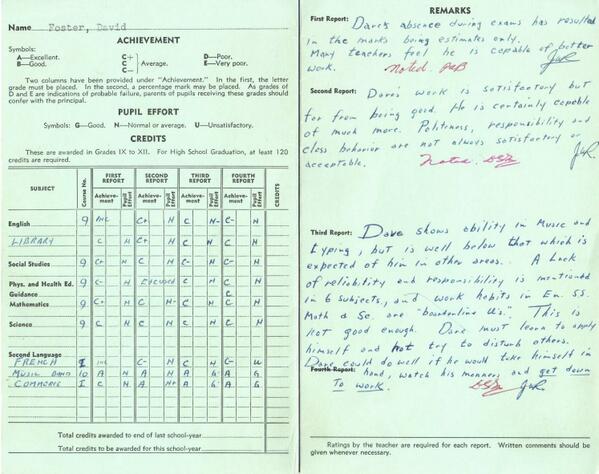 Name Foster, David
ACHIEVEMENT
Symbols:
A—Excellent.
B—Good.
C+
C
C—
Average.
D—Poor.
E—Very poor.
Two columns have been provided under "Achievement." In the first, the letter
grade must be placed. In the second, a percentage mark may be placed. As grades of
D and E are indications of probable failure, parents of pupils receiving these grades should
confer with the principal.
PUPIL EFFORT
Symbols: G—Good. N—Normal or average. U—Unsatisfactory.
CREDITS
These are awarded in Grades IX to XII. For High School Graduation, at least 120
credits are required.
SUBJECT Course No. FIRST REPORT SECOND REPORT THIRD REPORT FOURTH REPORT CREDITS
Achieve-ment Pupil Effort Achieve-ment Pupil Effort Achieve-ment Pupil Effort Achieve-ment Pupil Effort
English 9 INC C+ N C N- C- N
LIBRARY C N C+ N C N C
Social Studies 9 C+ N C N C- N C- N
Phys. and Health Ed. 9 C- N EXCUSED C N C N
Guidance C
Mathematics 9 C+ N C N- C N C N
Science 9 C N C N C N C- N
Second Language
FRENCH I INC C- N C N C- U
MUSIC BAND 10 A N A N A G A G
COMMERCE I C N A N+ A G A G
Total credits awarded to end of last school-year
Total credits to be awarded for this school-year
REMARKS
First Report: Dave's absence during exams has resulted
in the marks being estimates only.
Many teachers feel he is capable of better
work. Noted
Second Report: Dave's work is satisfactory but
far from being good. He is certainly capable
of much more. Politeness, responsibility and
class behavior are not always satisfactory or
acceptable. Noted
Third Report: Dave shows ability in Music and
typing, but is well below that which is
expected of him in other areas. A Lack
of reliability and responsibility is mentioned
in 6 subjects, and work habits in En. SS.
Math & Sc. are "borderline U's". This is
not good enough. Dave must learn to apply
himself and not try to disturb others.
Dave could do well if he would take himself in
Fourth Report: hand, watch his manners, and get down
To work.
Ratings by the teacher are required for each report. Written comments should be
given whenever necessary.